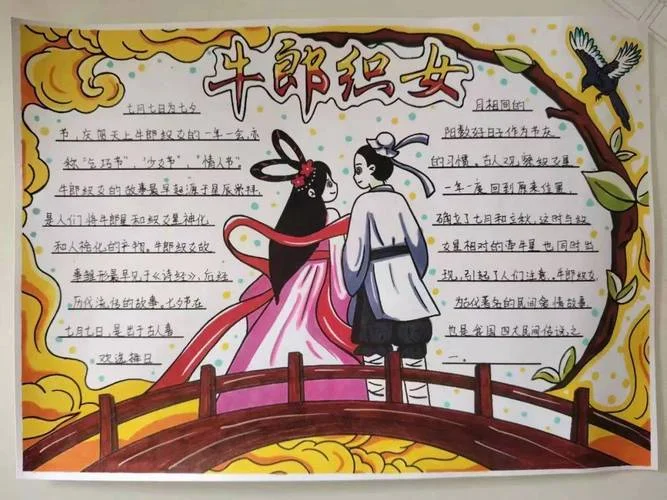 牛郎织女
七月七日为七夕
节,庆贺天上牛郎织女的一年一会,亦
称“乞巧节”,“少女节”,“情人节”
牛郎织女的故事最早起源于星辰崇拜,
是人们将牛郎星和织女星神化
和人格化的产物。牛郎织女故
事雏形最早见于《诗经》,后经
历代流传的故事。七夕节在
七月七日,是出于古人喜
欢选择日
月相同的
阳数好日子作为节庆
的习惯。古人观察织女星
一年一度回到原来位置,
确定了七月和立秋,这时与织
女星相对的牵牛星也同时出
现,引起了人们注意。牛郎织女
为古代著名的民间爱情故事,
也是我国四大民间传说之
一。